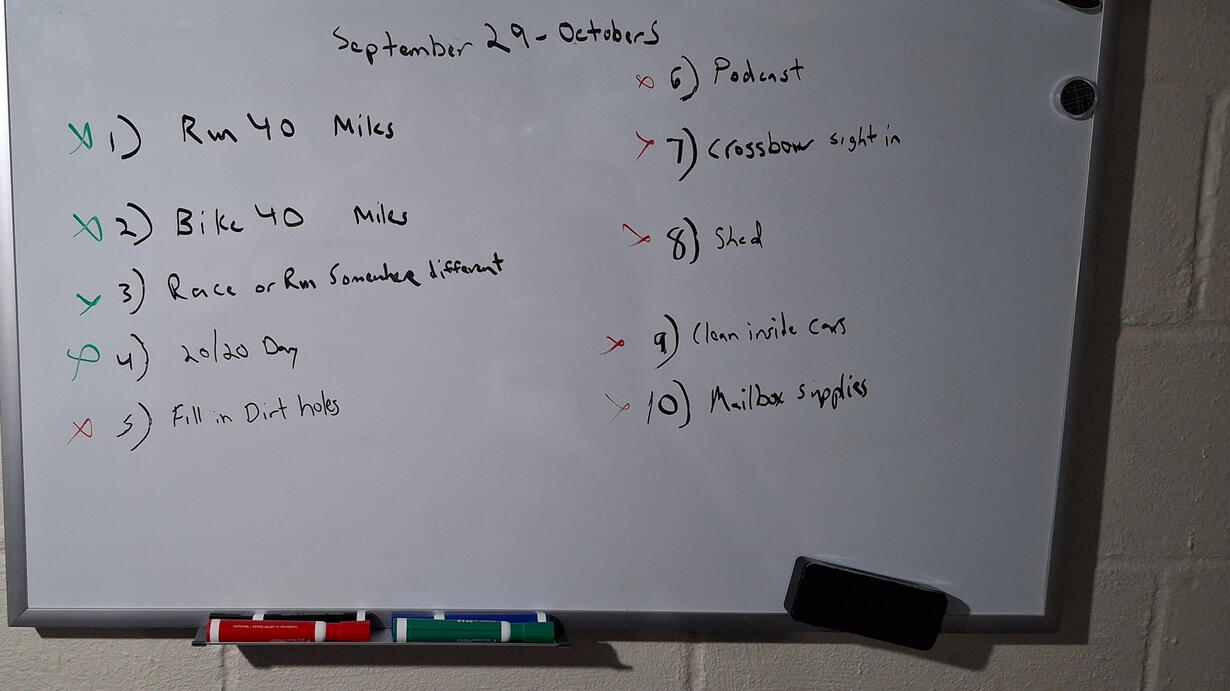 September 29 - October 5
1) Run 40 Miles
2) Bike 40 Miles
3) Race or Run Somewhere different
4) 20/20 Day
5) Fill in Dirt holes
6) Podcast
7) Crossbow sight in
8) Shed
9) Clean inside cars
10) Mailbox supplies